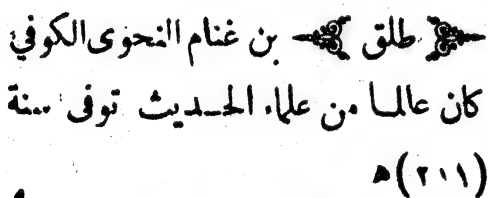 ﴿ طلق ﴾ بن غنام النحوى الكوفي
كان عالما من علماء الحديث توفى سنة
(٢٠١) ه